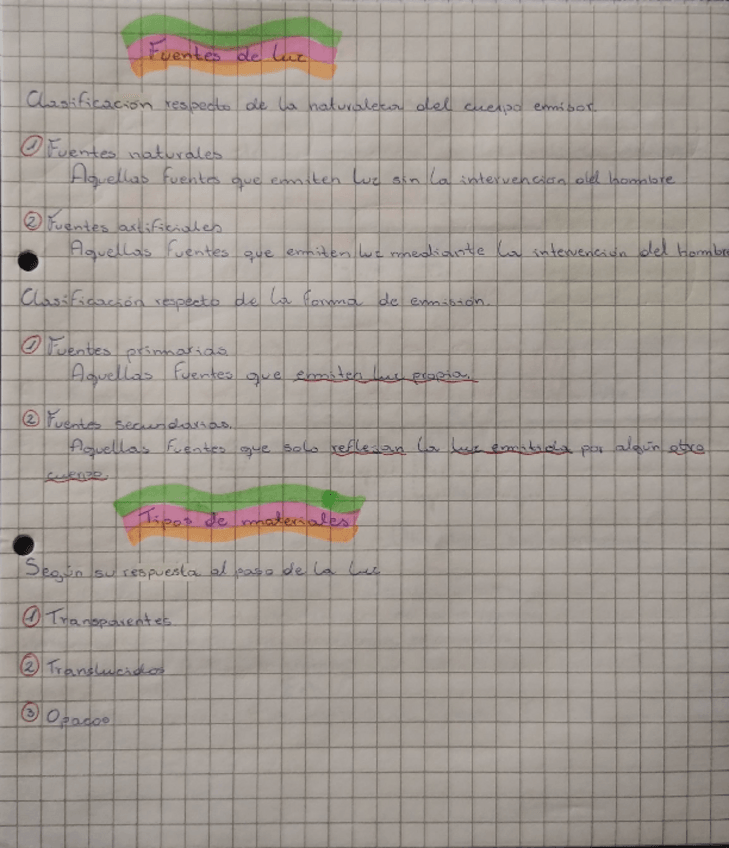 Fuentes de luz
Clasificación respecto de la naturaleza del cuerpo emisor.
① Fuentes naturales
Aquellas fuentes que emiten luz sin la intervencion del hombre
② Fuentes artificiales
Aquellas fuentes que emiten luz mediante la intervención del hombre
Clasificación respecto de la forma de emisión.
① Fuentes primarias.
Aquellas fuentes que emiten luz propia.
② Fuentes secundarias.
Aquellas fuentes que solo reflejan la luz emitida por algún otro
cuerpo
Tipos de materiales
Según su respuesta al paso de la luz
① Transparentes
② Translucidos
③ Opacos